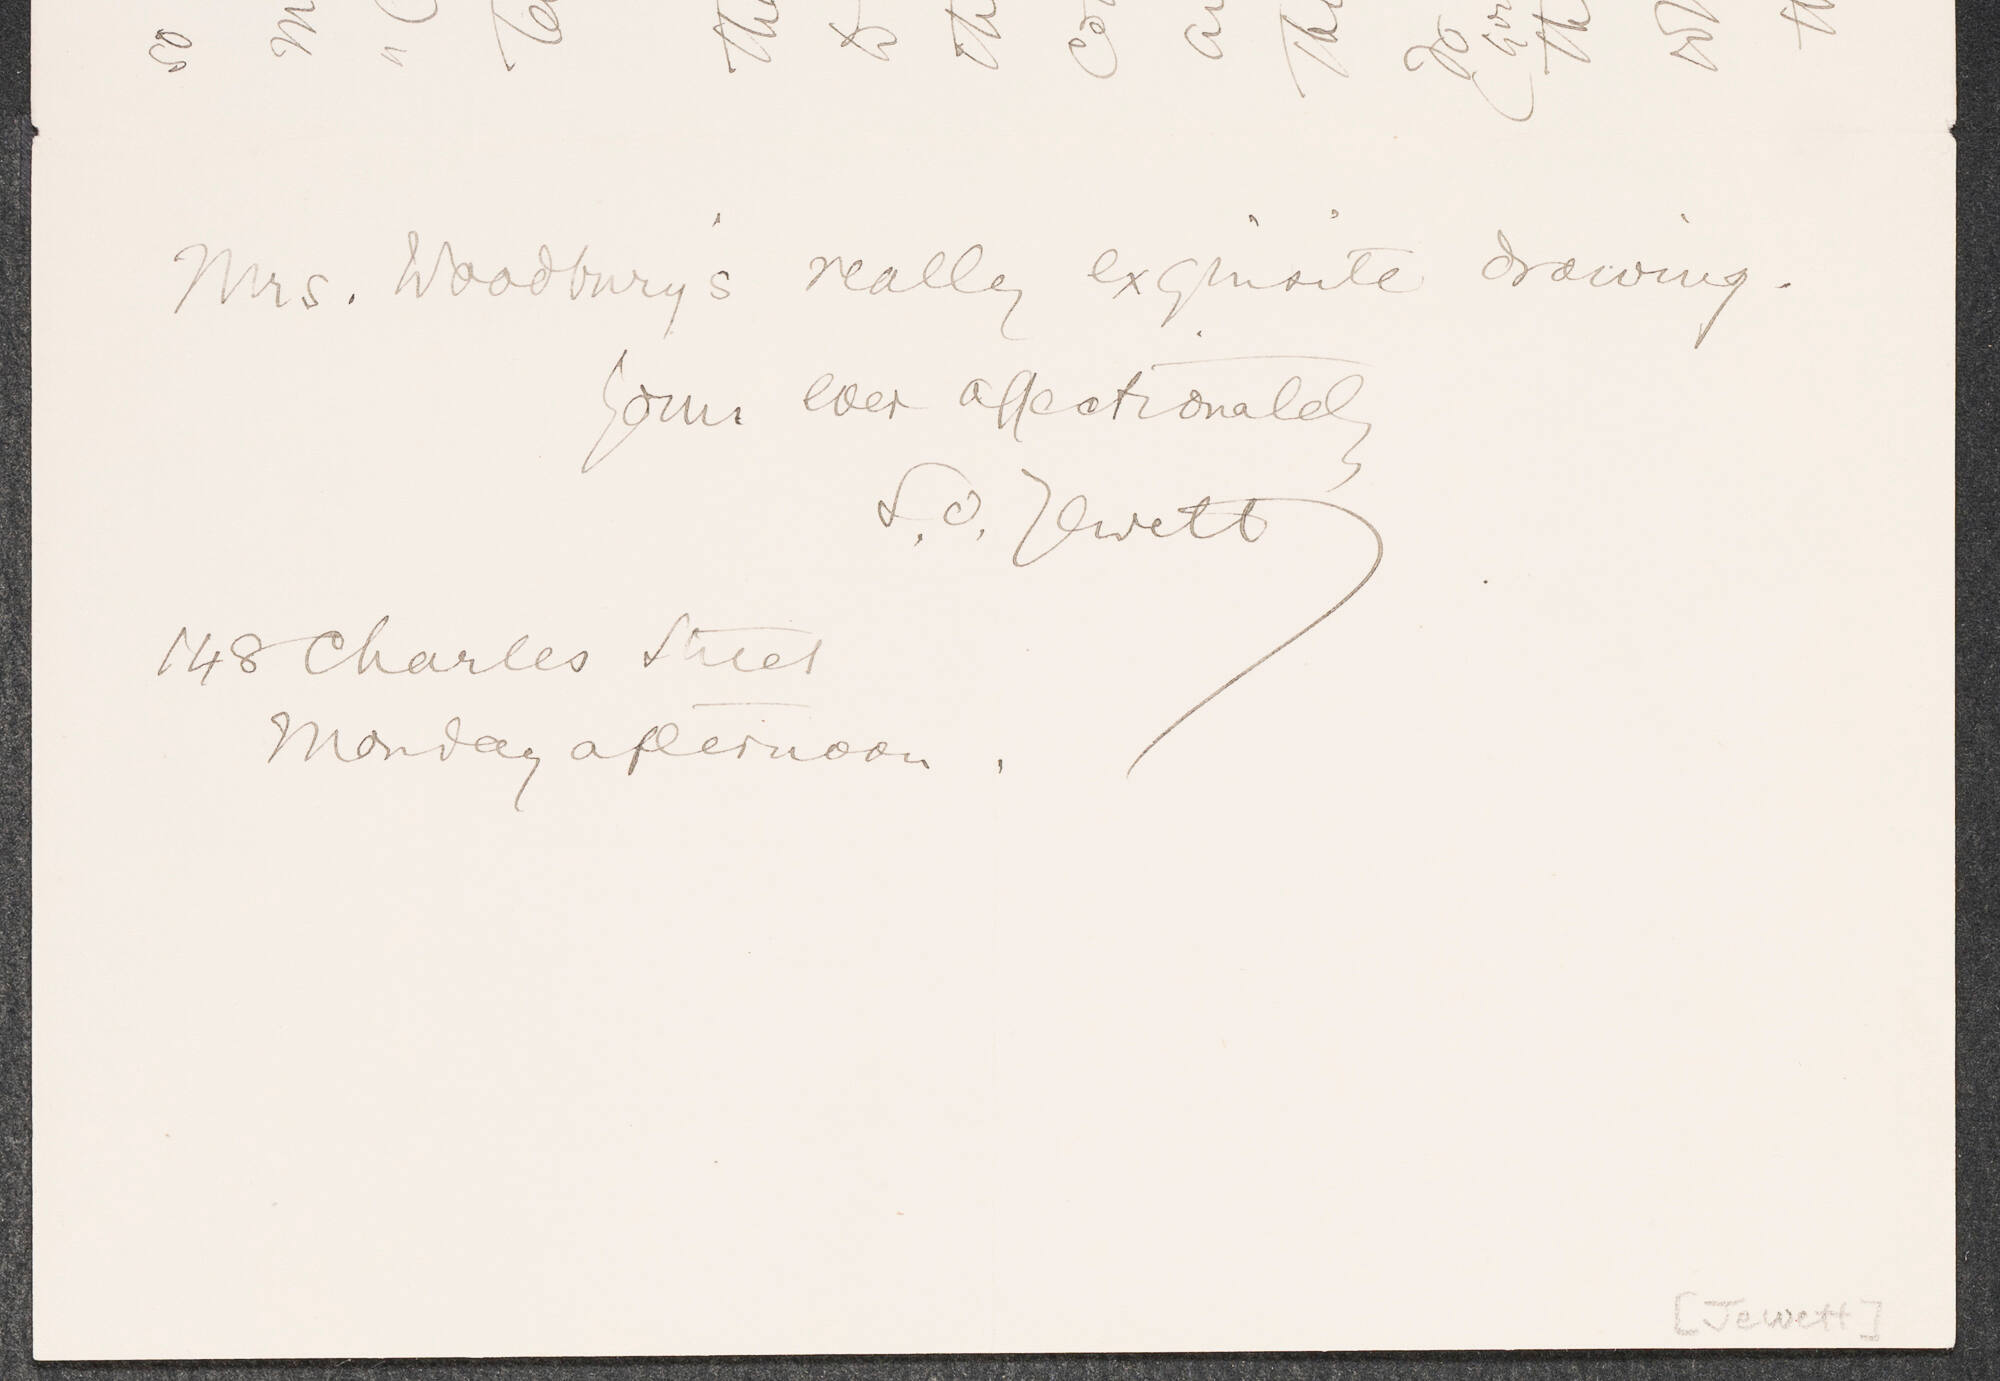 Mrs. Woodbury's really exquisite drawing.
Yours ever affectionately
S. O. Jewett
148 Charles Street
Monday afternoon.
[Jewett]